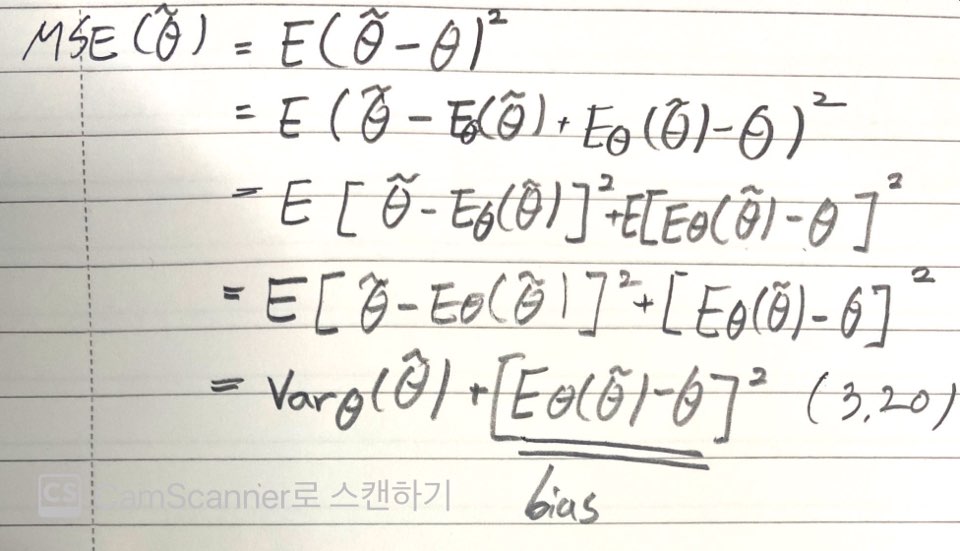 MSE(θ̃) = E(θ̃ - θ)²
= E(θ̃ - Eθ(θ̃) + Eθ(θ̃) - θ)²
= E[θ̃ - Eθ(θ̃)]² + E[Eθ(θ̃) - θ]²
= E[θ̃ - Eθ(θ̃)]² + [Eθ(θ̃) - θ]²
= Varθ(θ̃) + [Eθ(θ̃) - θ]² (3,20)
bias
CS CamScanner로 스캔하기